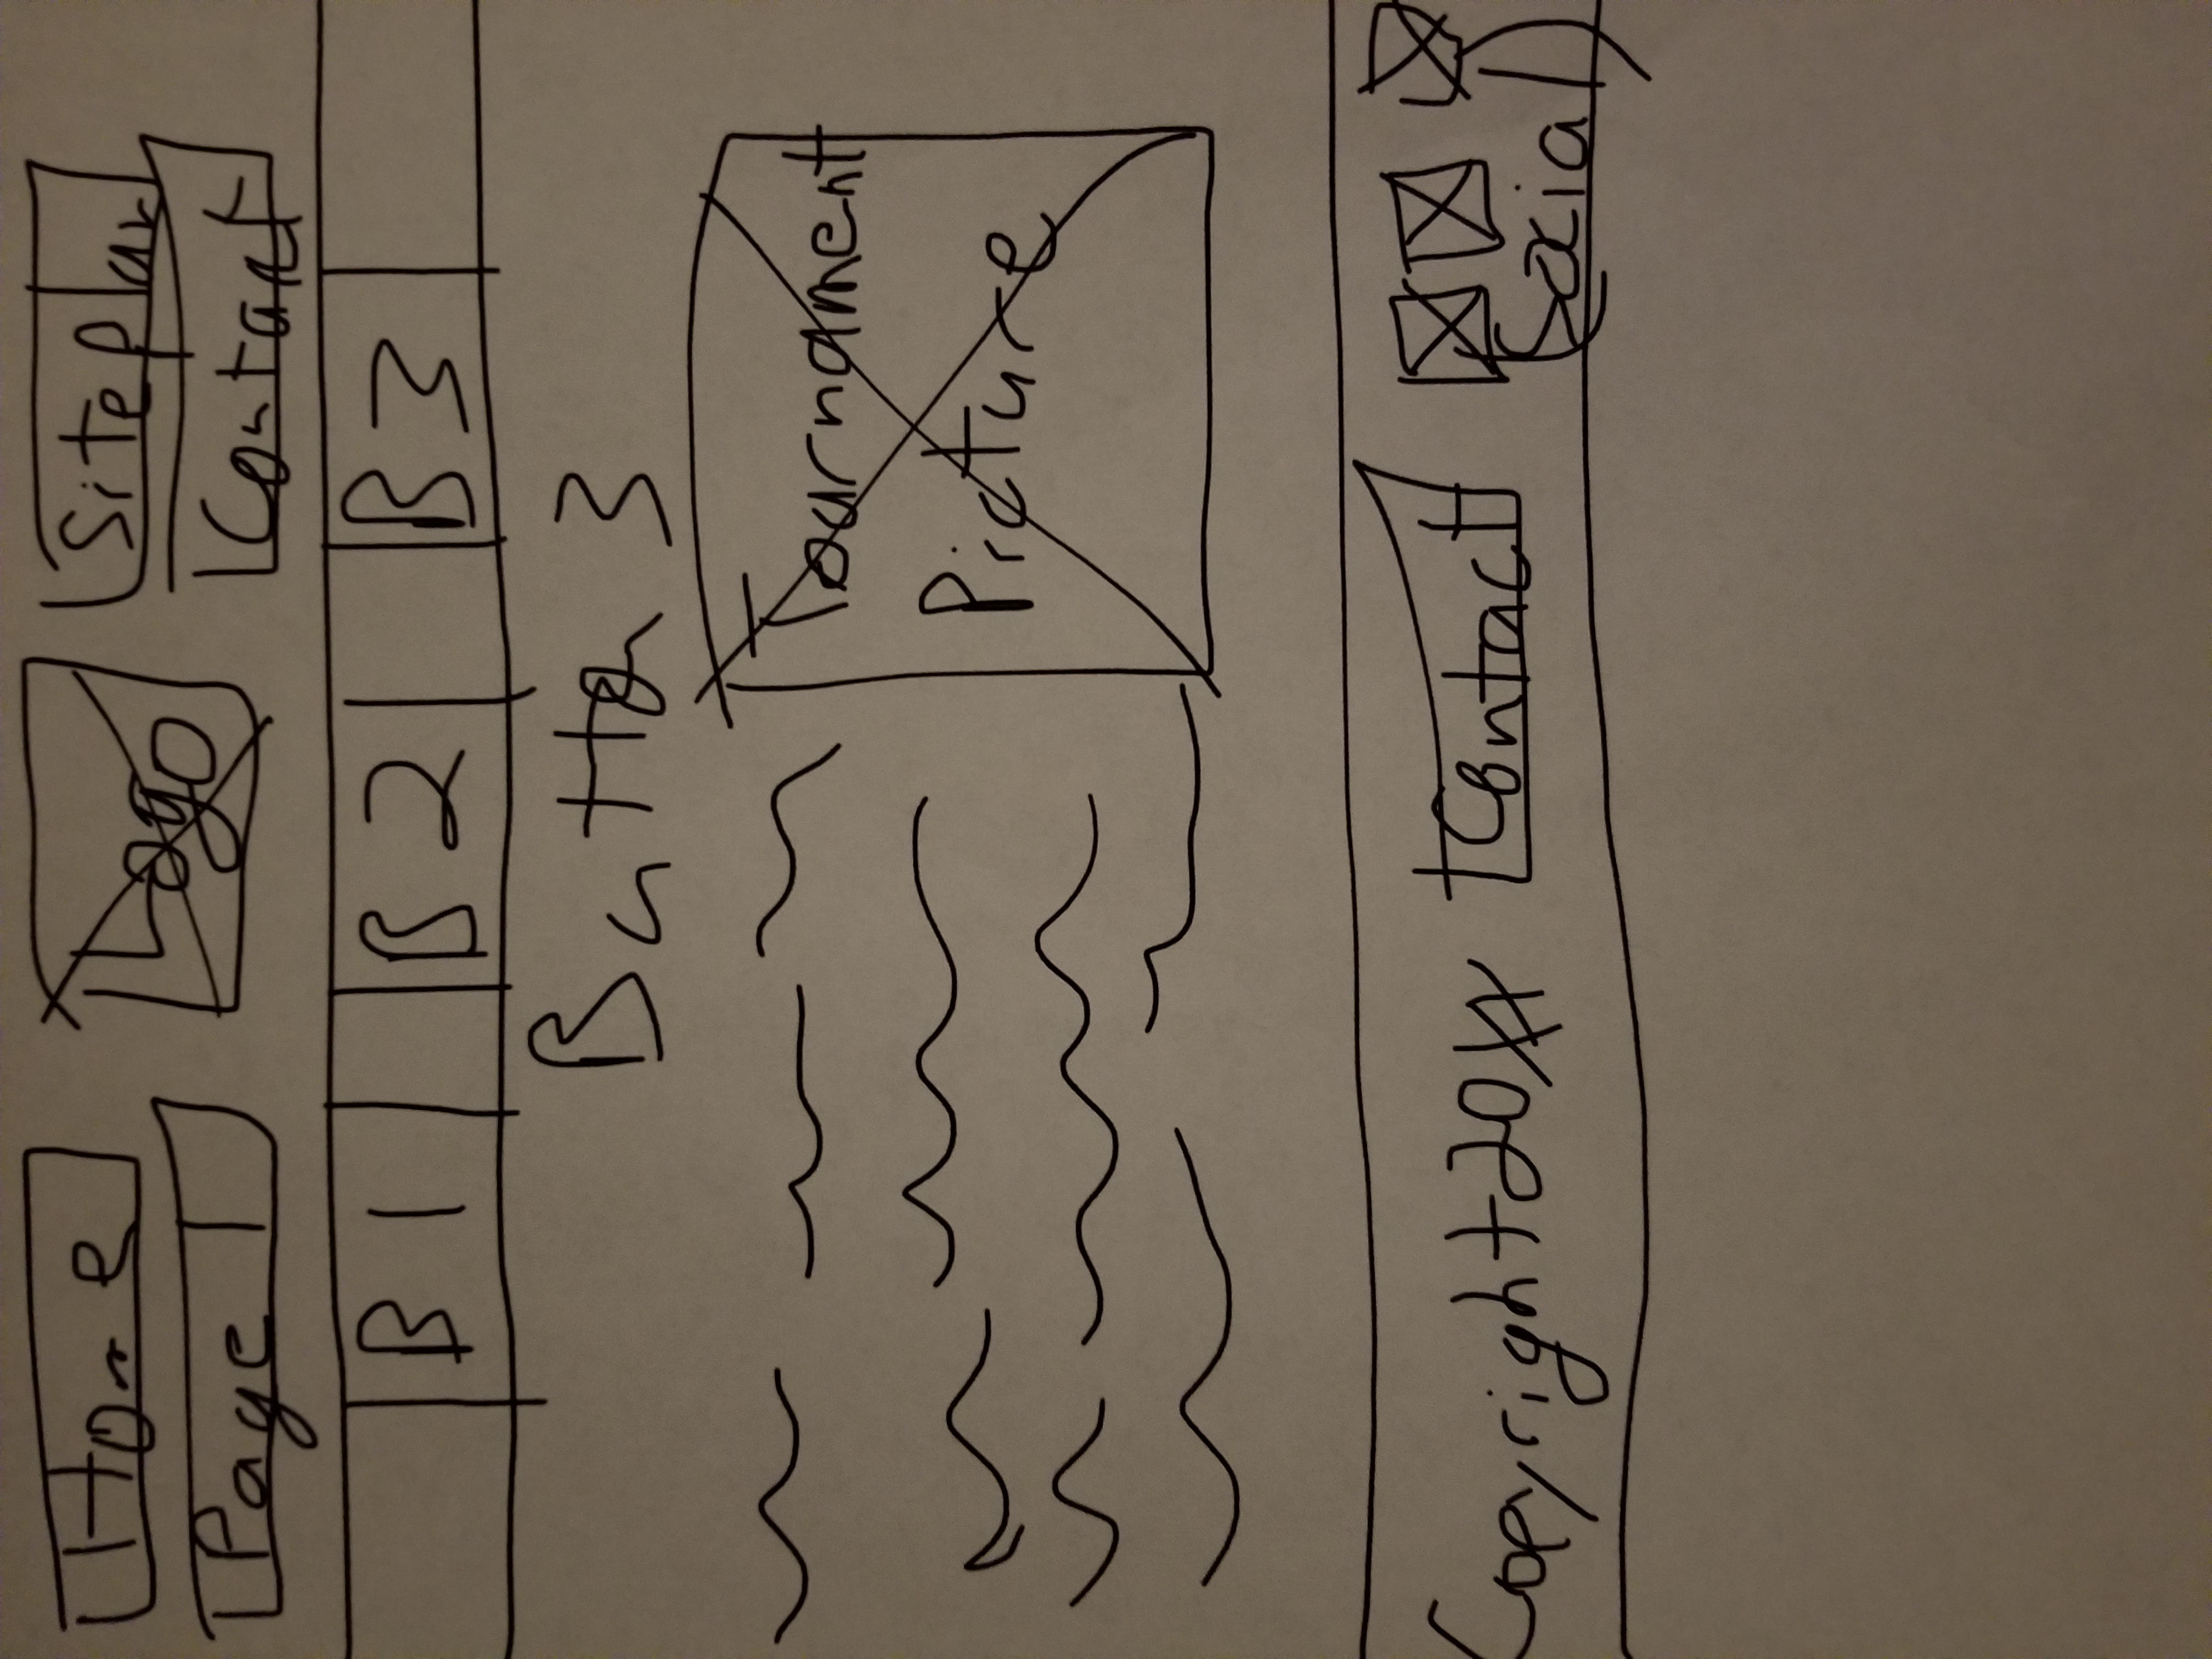 Home Logo Siteplan
Page 1 Contact
B 1 B 2 B 3
Button 3
Tournament
Picture
Copyright 20XX Contact
(Social)